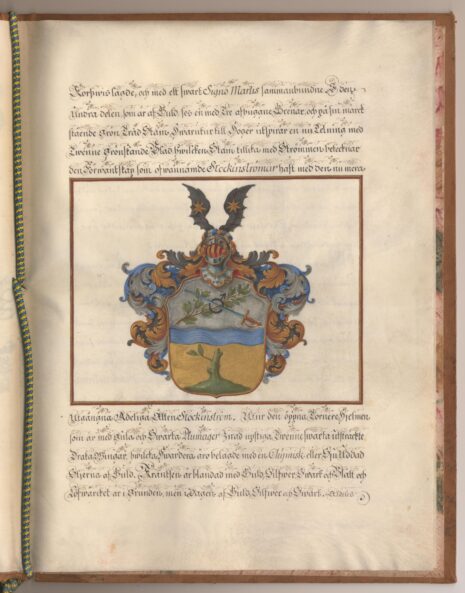 Korßwis lagde, och med ett swart Signo Martis sammanbundne. I den
andra delen som är af Guld, ses en med Tre afhuggne Grenar, och på sin
stående Grön Träd Stam, hwarutur till Höger utspirar en ny Telning med
Twenne Grönskande Blad, hwilcken Stam tillika med Strömmen betecknar
den Förwantskap som ofwannämde Steckinströmar haft med den nu mera
utgångna Adeliga Ätten Steckinström. Utur den öpna Torners Hielmen
som är med gula och Swarta Plumager Zirad upstiga Twenne swarta utsträckte
Draka Wingar, hwilcka hwardera äro belagde med en Sexudd
Stierna af Guld. Krantsen är blandad med Guld, Silfwer Swart och Blått och
Löfwercket är i Grunden, men i Dagen af Guld, Silfwer och Swart.